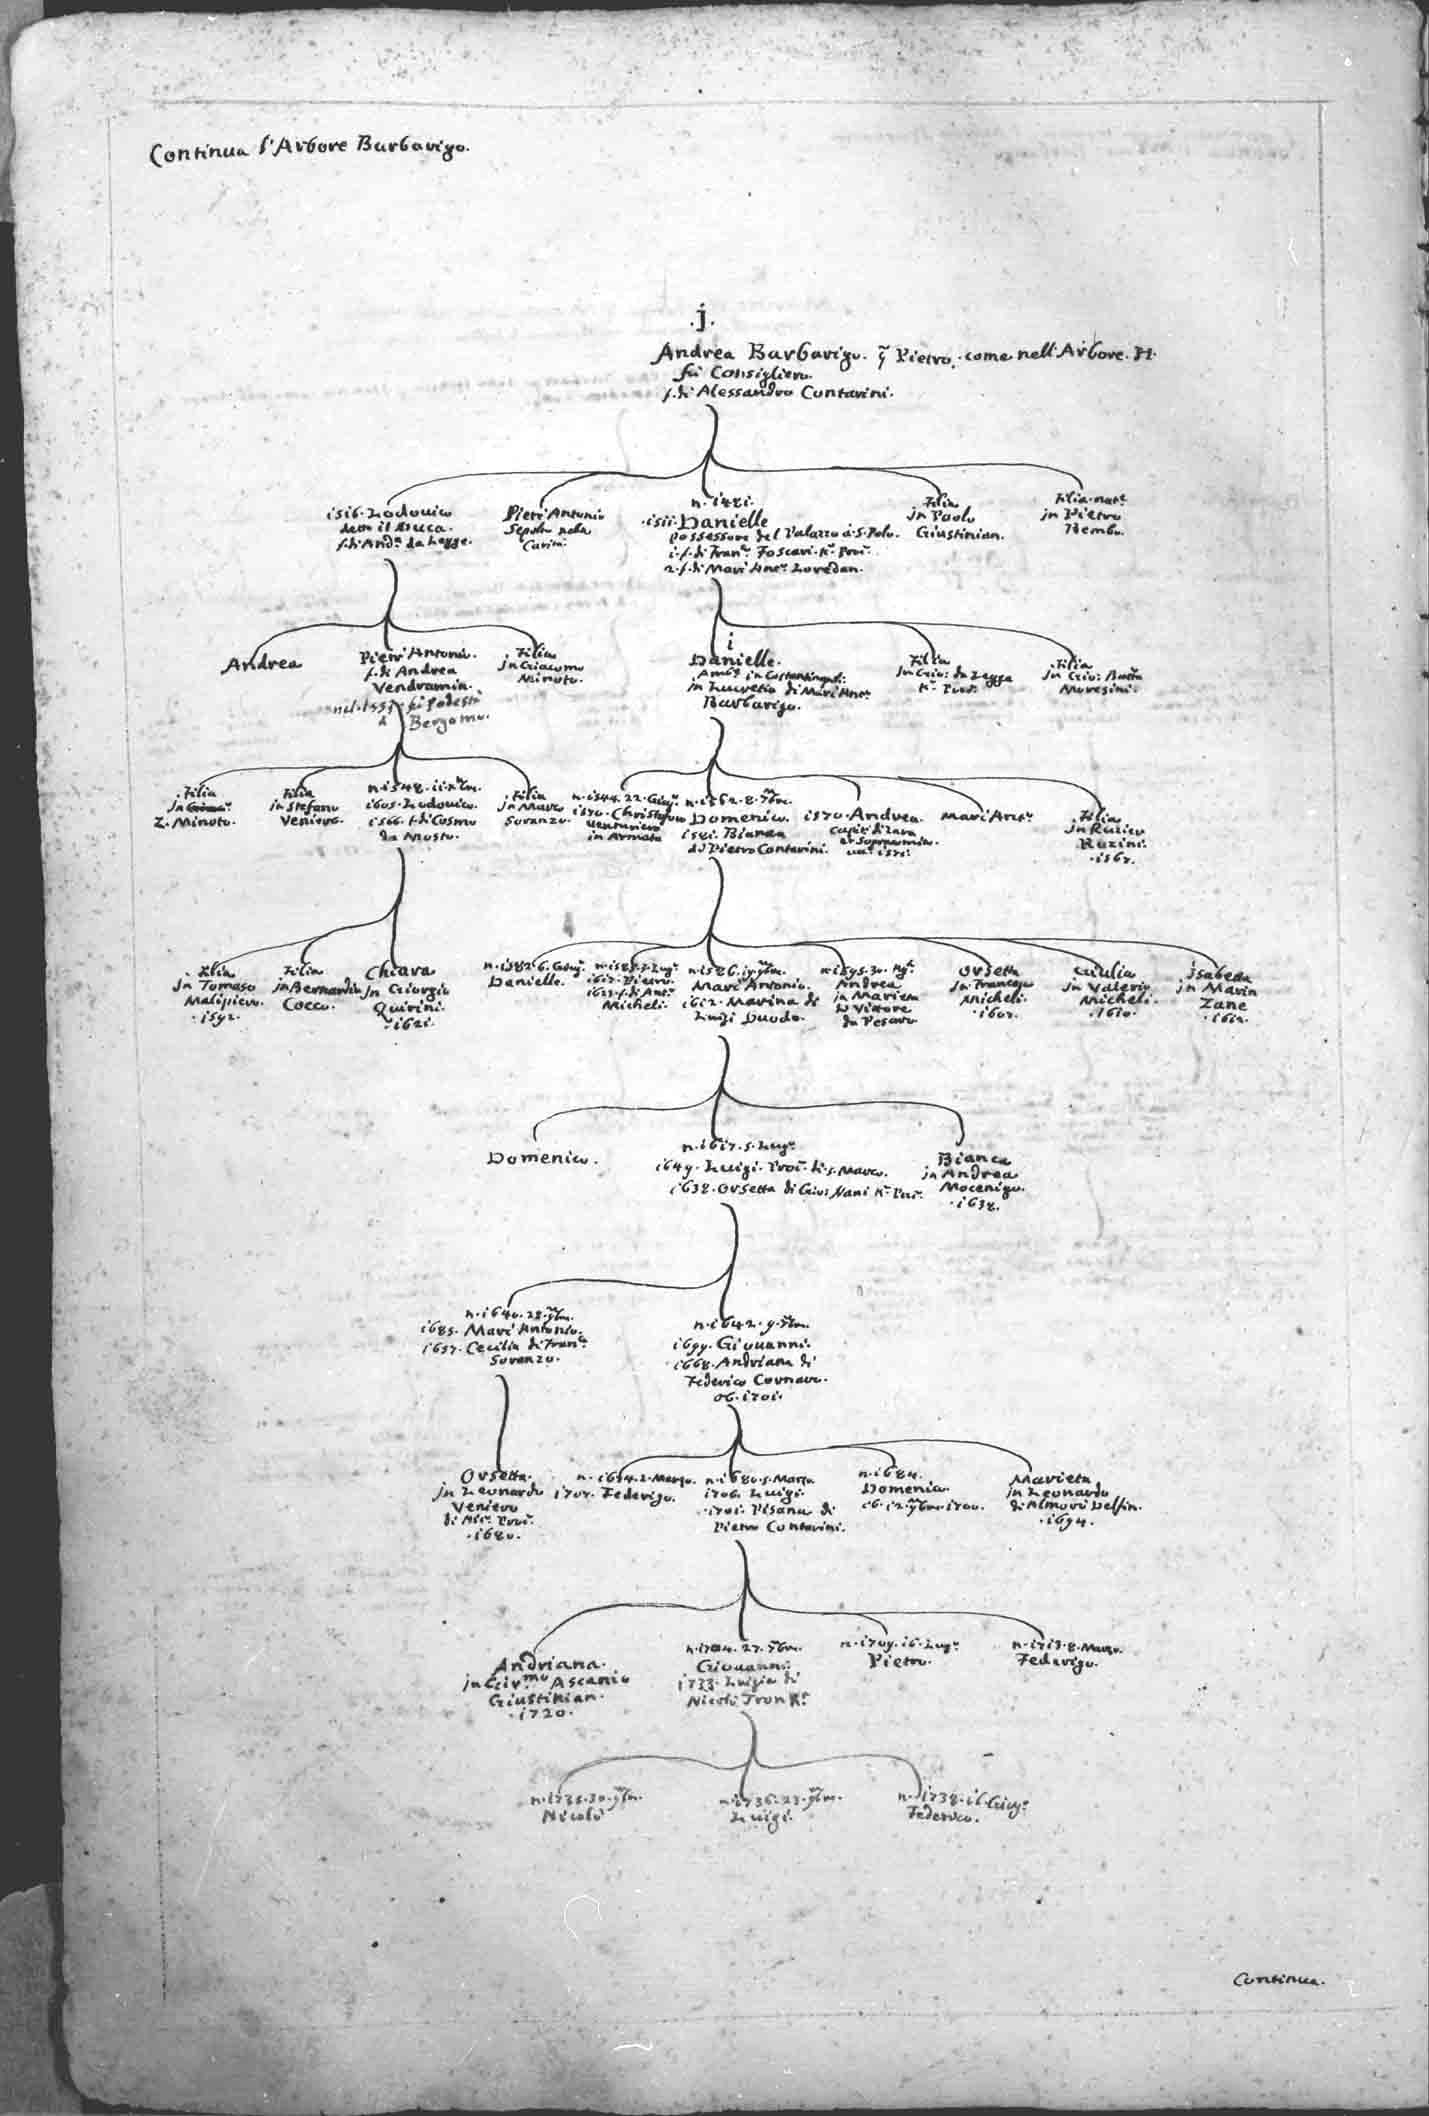 Continua l'Arbore Barbarigo.
.j.
Andrea Barbarigo. q Pietro, come nell'Arbore. H.
fù Consigliero.
f. di Alessandro Contarini.
1516. Lodovico
detto il Duca.
f. di And.a da Legge.
Pietr'Antonio
Sepolto nella
Carità.
n. 1481.
1511. Danielle
possessore del Palazzo à S. Polo.
1. f. di Fran.co Foscari K.r Proc.r
2. f. di Marc'Ant.o Loredan.
Filia
jn Paolo
Giustinian.
Filia nat.e
jn Pietro
Bembo.
Andrea
Pietr'Antonio.
f. di Andrea
Vendramin.
nel fù Podestà
à Bergamo.
Filia
jn Giacomo
Minoto.
i
Danielle.
Amb.r in Costantinopoli:
jn Lucretia di Marc'Ant.o
Barbarigo.
Filia
jn Gio: da Legge
K.r Proc.r
Filia
jn Gio: Batta
Moresini.
Filia
jn
Z. Minoto.
Filia
jn Stefano
Veniero.
n. 1548. 11. Xbre.
1605. Lodovico.
1566. f. di Cosmo
da Mosto.
Filia
jn Marco
Soranzo.
n. 1544. 22. Giug.o
1570. Christoforo
Venturiero
in Armata
n. 1562. 8. 7bre.
Domenico.
1581. Bianca
di Pietro Contarini.
1570. Andrea.
Capit.o di Zara
et Sopracomito.
Marc'Ant.o
Filia
jn Ruzier
Ruzini.
1567.
Filia
jn Tomaso
Malipiero.
1592.
Filia
jn Bernardin
Cocco.
Chiara
jn Giorgio
Quirini.
1621.
n. 1582. 6. Giug.o
Danielle.
Pietro.
f. di Ant.o
Micheli.
n. 1586. 9bre.
Marc'Antonio.
1612. Marina di
Luigi Duodo.
n. 1595. 30. Ag.o
Andrea
jn Marieta
di Vittore
da Pesaro
Orsetta
jn Francesco
Micheli.
1607.
Giulia
jn Valerio
Micheli.
1610.
jsabetta
jn Marin
Zane
1612.
Domenico.
n. 1617. 5. Lug.o
1649. Luigi. Proc.r di S. Marco.
1638. Orsetta di Gio: Nani K.r Proc.r
Bianca
jn Andrea
Mocenigo.
1638.
n. 1640. 28. 9bre.
1685. Marc'Antonio.
1657. Cecilia di Fran.co
Soranzo.
n. 1642. 9. 7bre.
1699. Giovanni.
1668. Andriana di
Federico Cornaro.
ob. 1701.
Orsetta.
jn Leonardo
Veniero
di Nic.o Proc.r
1680.
n. 1674. 2. Marzo.
1707. Federigo.
n. 1680. 5. Marzo.
1706. Luigi.
1701. Pisana di
Pietro Contarini.
n. 1684.
Domenico.
ob. 12. 9bre. 1700.
Marieta
jn Leonardo
di Almorò Delfin.
1694.
Andriana.
jn Gir.mo Ascanio
Giustinian.
1720.
n. 1704. 27. 7bre.
Giovanni.
1733. Luigia di
Nicolò Tron K.r
n. 1709. 16. Lug.o
Pietro.
n. 1713. 8. Marzo.
Federigo.
n. 1735. 30. 9bre.
Nicolò
n. 1736. 23. 9bre.
Luigi.
n. 1738. 16. Giug.o
Federico.
Continua.